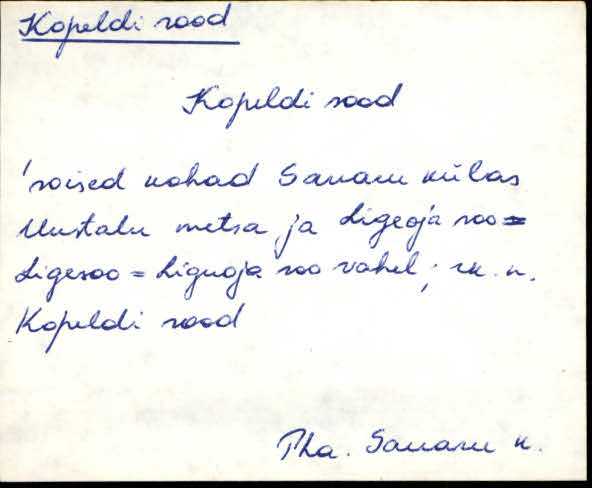 Kopeldi sood
Kopeldi sood
'soised kohad Sauaru külas
Uustalu metsa ja Ligeoja soo=
Ligesoo = Liguoja soo vahel; rk. n.
Kopeldi sood
Pha. Sauaru k.